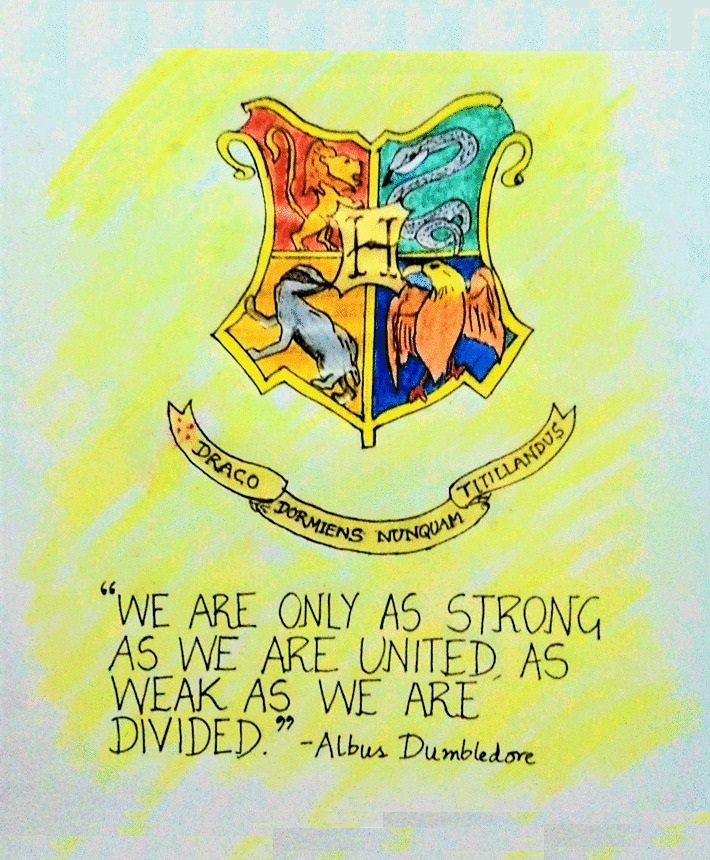 H
DRACO
DORMIENS NUNQUAM
TITILLANDUS
“WE ARE ONLY AS STRONG
AS WE ARE UNITED, AS
WEAK AS WE ARE
DIVIDED.” -Albus Dumbledore